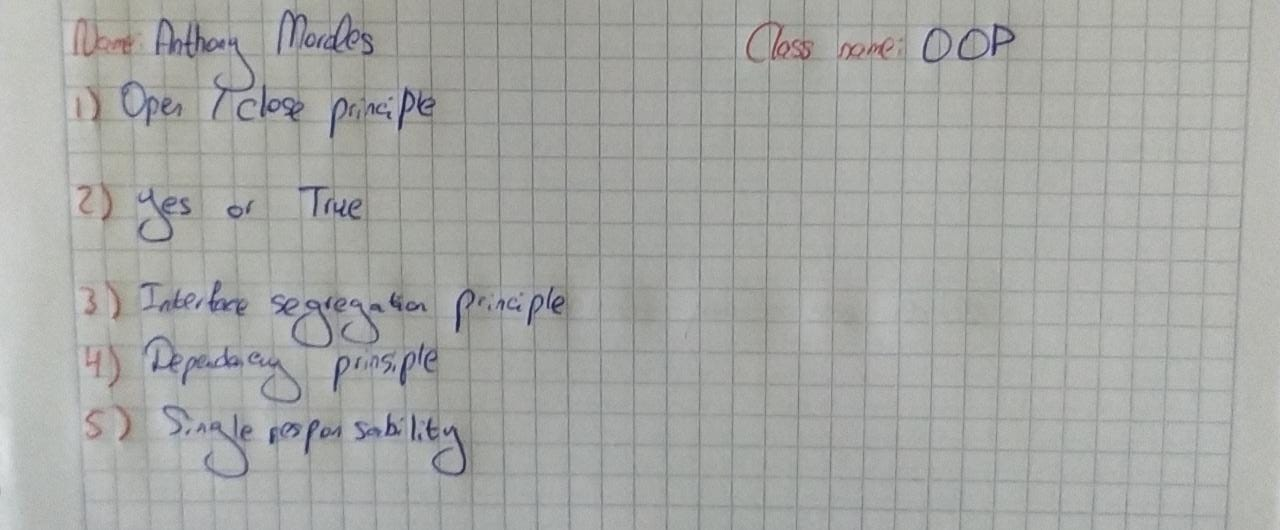 Name: Anthony Morales Class name: OOP
1) Open / close principle
2) Yes or True
3) Interface segregation principle
4) Dependency prinsiple
5) Single responsability